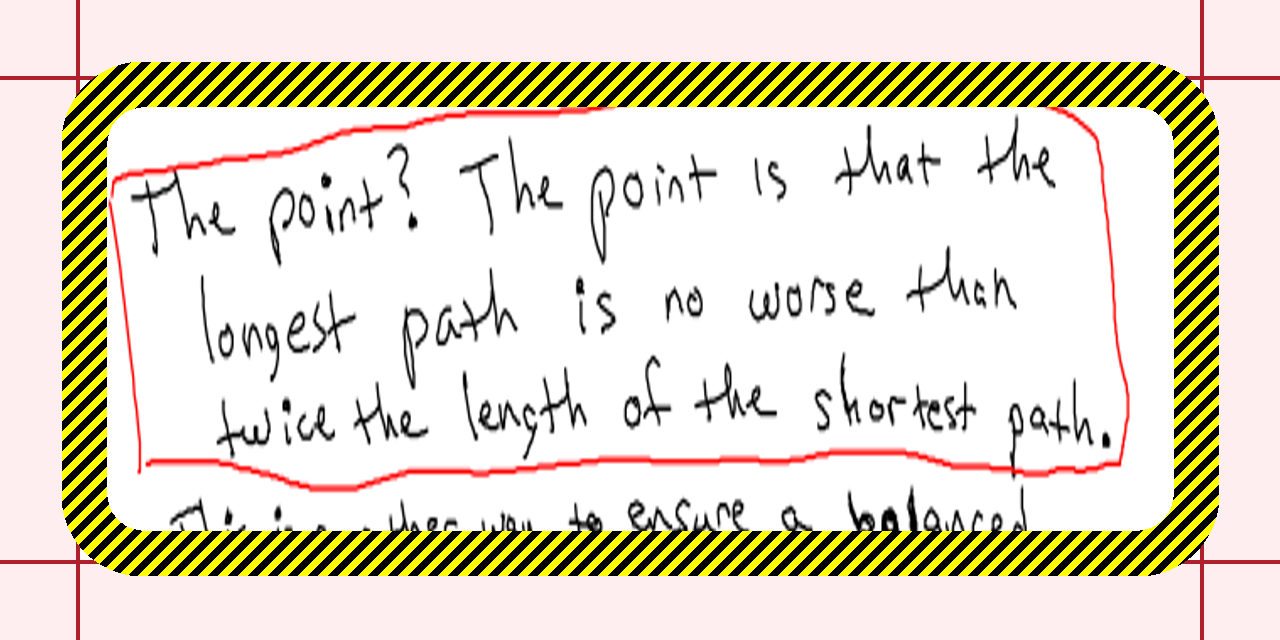 The point? The point is that the
longest path is no worse than
twice the length of the shortest path.
This is another way to ensure a balanced